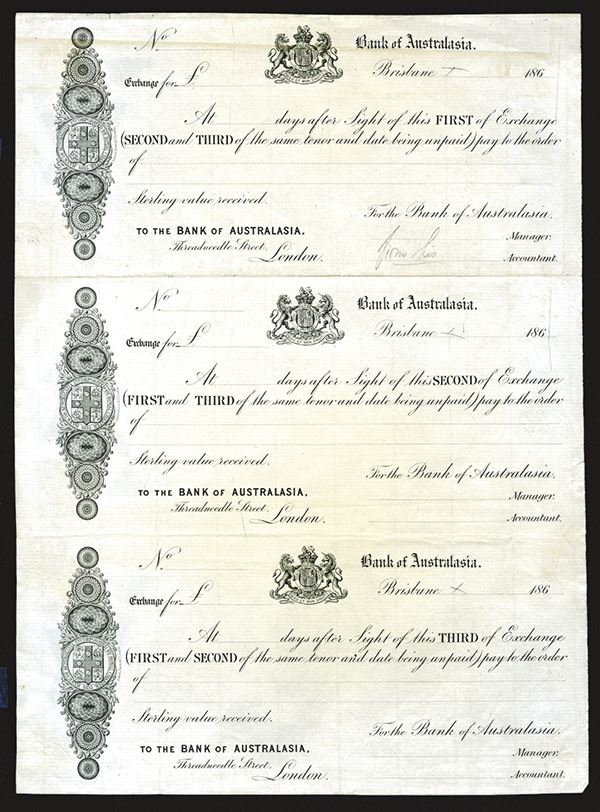 No
Bank of Australasia.
Brisbane 186
Exchange for £
At days after Sight of this FIRST of Exchange
(SECOND and THIRD of the same tenor and date being unpaid) pay to the order
of
Sterling value received.
For the Bank of Australasia.
TO THE BANK OF AUSTRALASIA.
Manager.
Threadneedle Street,
London.
Accountant.
No
Bank of Australasia.
Brisbane 186
Exchange for £
At days after Sight of this SECOND of Exchange
(FIRST and THIRD of the same tenor and date being unpaid) pay to the order
of
Sterling value received.
For the Bank of Australasia.
TO THE BANK OF AUSTRALASIA,
Manager.
Threadneedle Street,
London.
Accountant.
No
Bank of Australasia.
Brisbane 186
Exchange for £
At days after Sight of this THIRD of Exchange
(FIRST and SECOND of the same tenor and date being unpaid) pay to the order
of
Sterling value received.
For the Bank of Australasia.
TO THE BANK OF AUSTRALASIA,
Manager.
Threadneedle Street,
London.
Accountant.